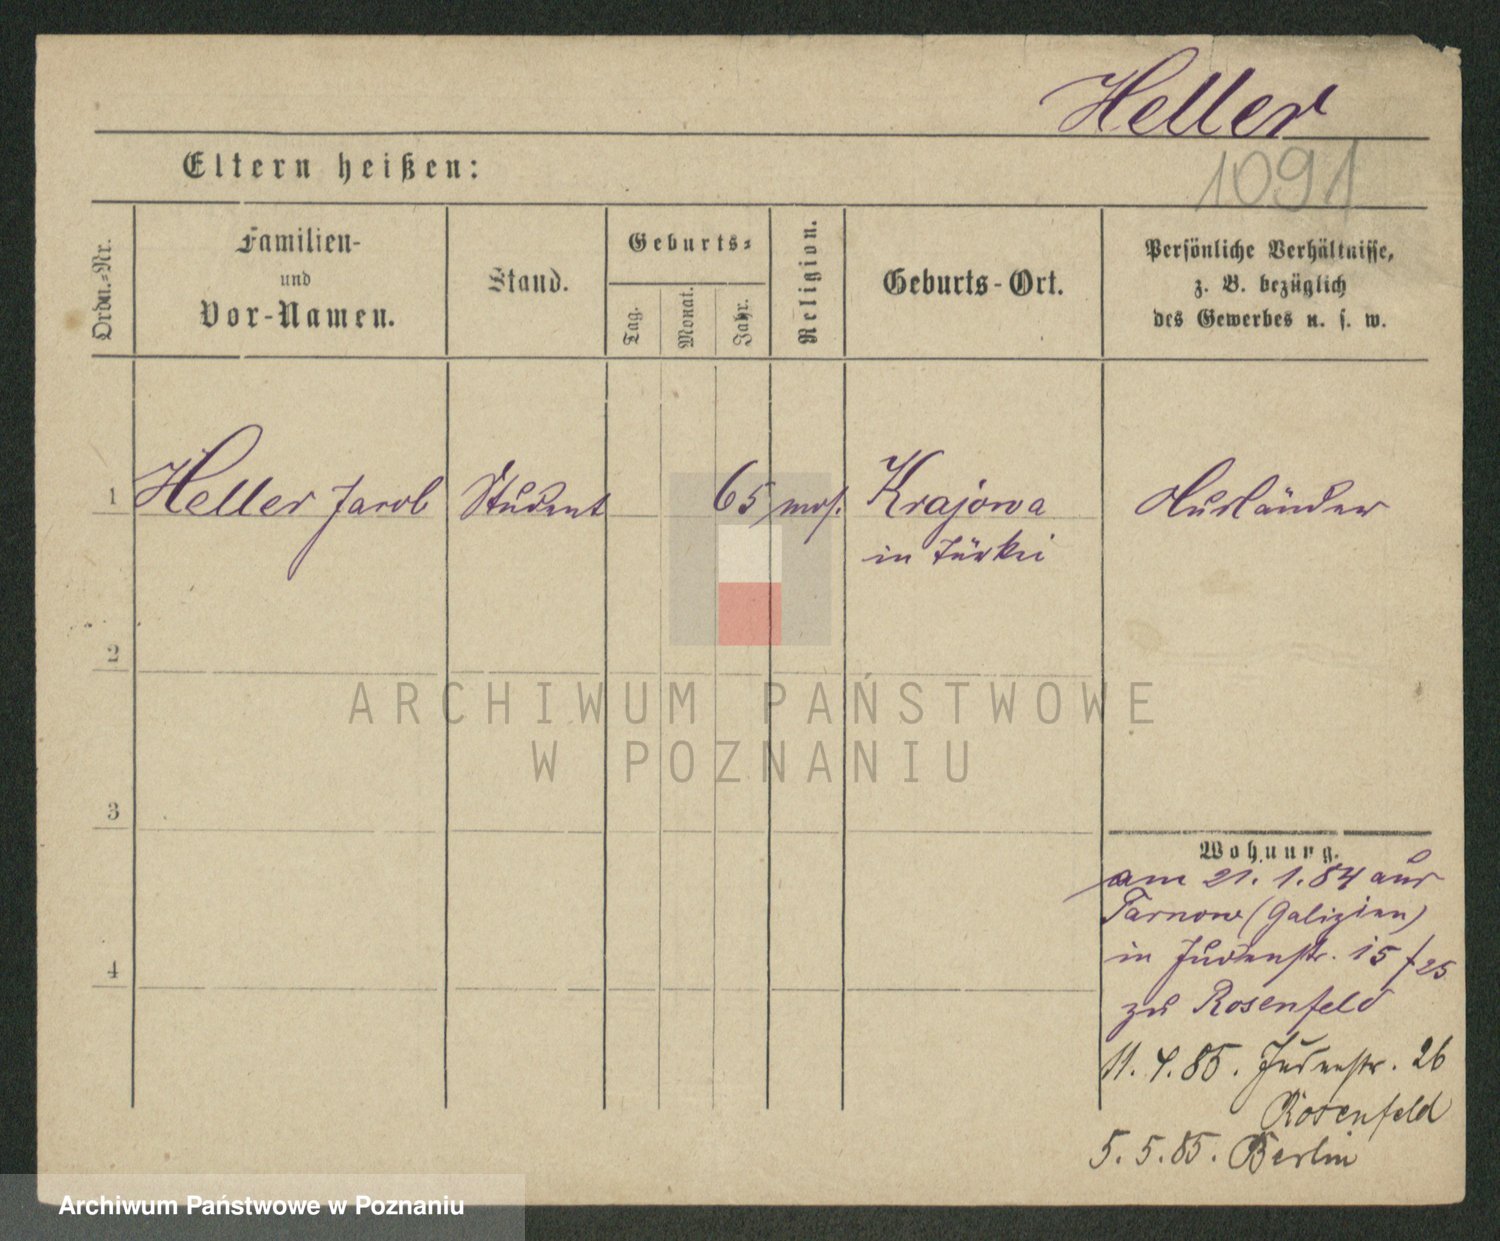 Heller
1091
Eltern heißen:
Ordn.-Nr.
Familien-
und
Vor-Namen.
Stand.
Geburts-
Tag.
Monat.
Jahr.
Religion.
Geburts-Ort.
Persönliche Verhältnisse,
z. B. bezüglich
des Gewerbes u. s. w.
1 Heller Jacob Student 65 mos. Krajowa Ausländer
in Türkei
2
3
4
Wohnung.
am 21. 1. 84 aus
Tarnow (Galizien)
in Judenstr. 15/25
zu Rosenfeld
11. 4. 85. Judenstr. 26
Rosenfeld
5. 5. 85. Berlin
ARCHIWUM PAŃSTWOWE
W POZNANIU
Archiwum Państwowe w Poznaniu